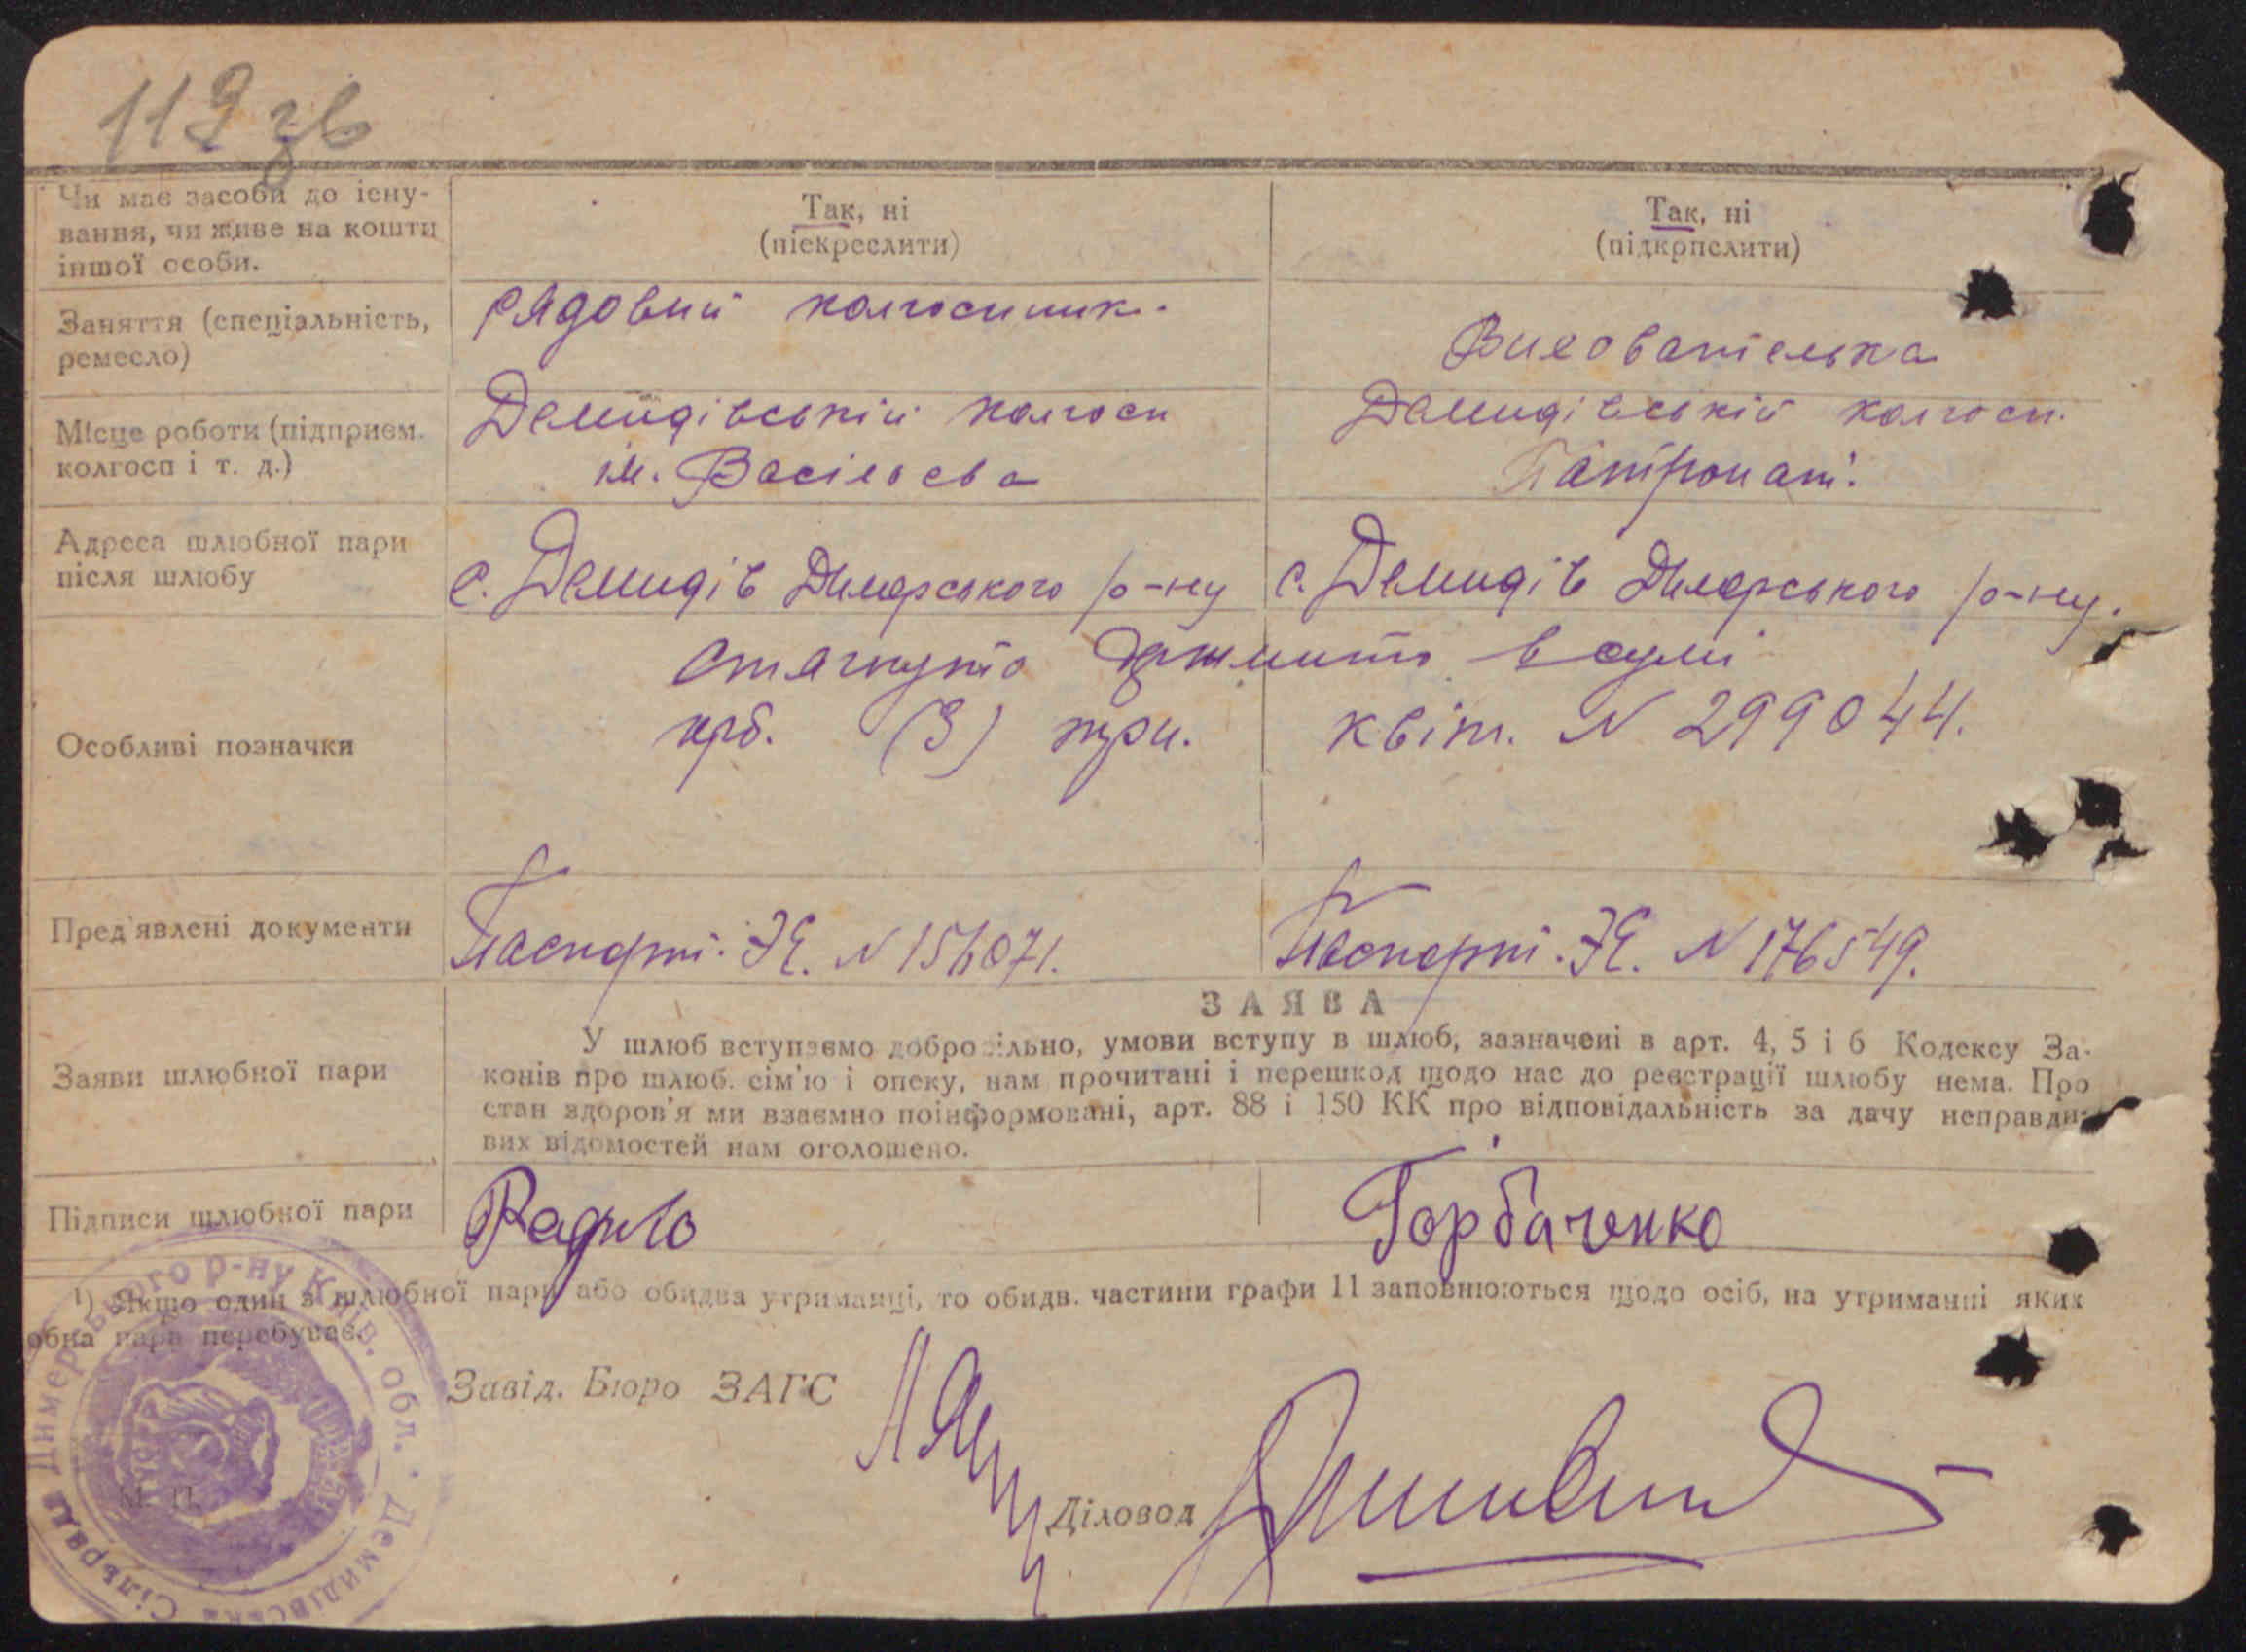 119 зв
Чи має засоби до існу-
вання, чи живе на кошти
іншої особи.
Так, ні
(піскреслити)
Так, ні
(підкрпслити)
Заняття (спеціальність,
ремесло)
рядовий колгоспник.
Вихователька
Місце роботи (підприєм.
колгосп і т. д.)
Демидівський колгосп
ім. Васільєва
Демидівській колгосп.
Патронат.
Адреса шлюбної пари
після шлюбу
с. Демидів Димерського р-ну
с. Демидів Димерського р-ну.
Особливі позначки
стягнуто держмито в сумі
крб. (3) три. квіт. N 299044.
Пред'явлені документи
Паспорт. ЭЕ. N 156071.
Паспорт. ЭЕ. N 176549.
ЗАЯВА
Заяви шлюбної пари
У шлюб вступаємо добровільно, умови вступу в шлюб, зазначені в арт. 4, 5 і 6 Кодексу За-
конів про шлюб. сім'ю і опеку, нам прочитані і перешкод щодо нас до реєстрації шлюбу нема. Про
стан здоров'я ми взаємно поінформовані, арт. 88 і 150 КК про відповідальність за дачу неправди-
вих відомостей нам оголошено.
Підписи шлюбної пари
Горбаченко
¹) Якщо один з шлюбної пари або обидва утриманці, то обидв. частини графи 11 заповнюються щодо осіб, на утриманні яких
обна пара перебуває.
Завід. Бюро ЗАГС
Діловод
М. П.
Демидівська Сільрада Димерського р-ну Київ. обл.